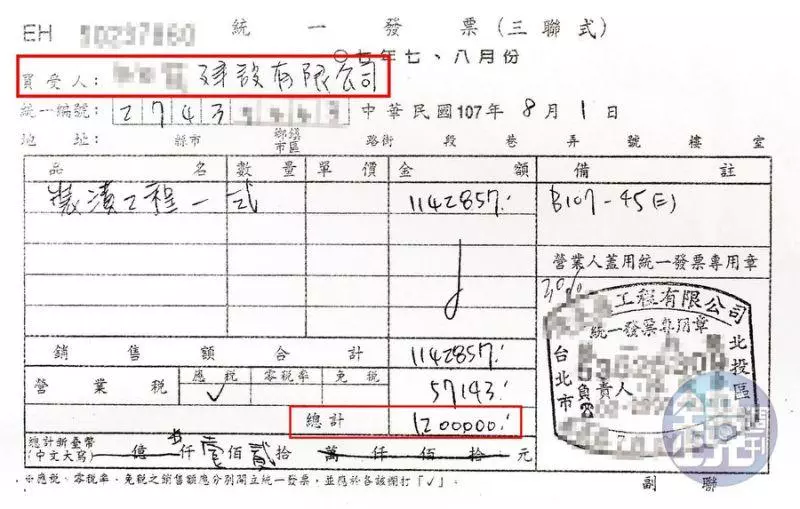 EH 統一發票(三聯式)
〇七年七、八月份
買受人: 建設有限公司
統一編號: 2743 中華民國107年8月1日
地址: 縣市 鄉鎮市區 路街 段 巷 弄 號 樓 室
品名 數量 單價 金額 備註
裝潢工程一式 1142857 B107-45(三)
營業人蓋用統一發票專用章
30%
工程有限公司
統一發票專用章
台北市 北投區
負責人
銷售額合計 1142857
營業稅 應稅 零稅率 免稅 57143
✓
總計 1200000
總計新臺幣(中文大寫) 億 仟壹佰貳拾 萬 仟 佰 拾 元
※應稅、零稅率、免稅之銷售額應分別開立統一發票，並應於各該欄打「✓」。
副聯